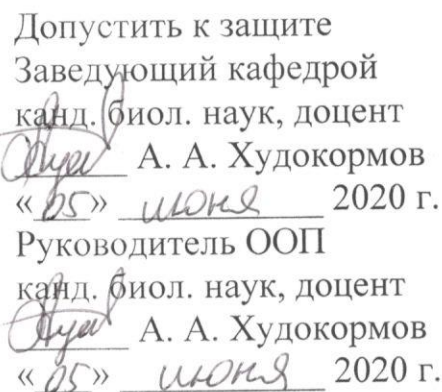 Допустить к защите
Заведующий кафедрой
канд. биол. наук, доцент
А. А. Худокормов
«05» июня 2020 г.
Руководитель ООП
канд. биол. наук, доцент
А. А. Худокормов
«05» июня 2020 г.